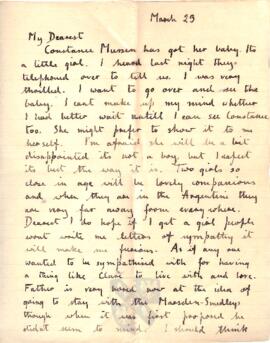 March 23
My Dearest
Constance Mussen has got her baby. Its
a little girl. I heard last night they
telephoned over to tell us. I was very
thrilled. I want to go over and see the
baby. I cant make up my mind whether
I had better wait untill I can see Constance
too. She might prefer to show it to me
herself. I'm afraid she will be a bit
disappointed its not a boy, but I expect
its best the way it is. Two girls so
close in age will be lovely companions
and, when they are in the Argentine they
are very far away from everywhere.
Dearest I do hope if I get a girl people
wont write me letters of sympathy it
will make me furious. As if any one
wanted to be sympathised with for having
a thing like Clare to live with and love.
Father is very bored now at the idea of
going to stay with the Marsden-Smedleys
though when it was first proposed he
didnt seem to mind. I should think